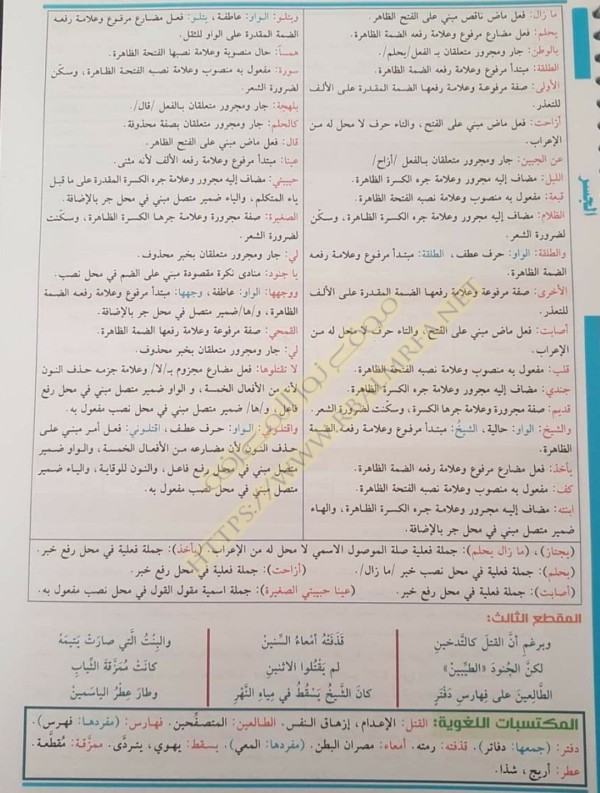 ما زال: فعل ماض ناقص مبني على الفتح الظاهر.
يحلم: فعل مضارع مرفوع وعلامة رفعه الضمة الظاهرة.
بالوطن: جار ومجرور متعلقان بـ الفعل /يحلم/.
الطلقة: مبتدأ مرفوع وعلامة رفعه الضمة الظاهرة.
الأولى: صفة مرفوعة وعلامة رفعها الضمة المقدرة على الألف
للتعذر.
أزاحت: فعل ماض مبني على الفتح، والتاء حرف لا محل له من
الإعراب.
عن الجبين: جار ومجرور متعلقان بـالفعل /أزاح/
الليل: مضاف إليه مجرور وعلامة جره الكسرة الظاهرة.
قبعة: مفعول به منصوب وعلامة نصبه الفتحة الظاهرة.
الظلام: مضاف إليه مجرور وعلامة جره الكسرة الظاهرة، وسكّن
لضرورة الشعر.
والطلقة: الواو: حرف عطف، الطلقة: مبتدأ مرفوع وعلامة رفعه
الضمة الظاهرة.
الأخرى: صفة مرفوعة وعلامة رفعها الضمة المقدرة على الألف
للتعذر.
أصابت: فعل ماض مبني على الفتح، والتاء حرف لا محل له من
الإعراب.
قلب: مفعول به منصوب وعلامة نصبه الفتحة الظاهرة.
جندي: مضاف إليه مجرور وعلامة جره الكسرة الظاهرة.
قديم: صفة مجرورة وعلامة جرها الكسرة، وسكّنت لضرورة الشعر.
والشيخ: الواو: حالية، الشيخُ: مبتدأ مرفوع وعلامة رفعه الضمة
الظاهرة.
يأخذ: فعل مضارع مرفوع وعلامة رفعه الضمة الظاهرة.
كف: مفعول به منصوب وعلامة نصبه الفتحة الظاهرة.
ابنته: مضاف إليه مجرور وعلامة جره الكسرة الظاهرة، والهاء
ضمير متصل مبني في محل جر بالإضافة.
ويتلو: الواو: عاطفة، يتلو: فعل مضارع مرفوع وعلامة رفعه
الضمة المقدرة على الواو للثقل.
همساً: حال منصوبة وعلامة نصبها الفتحة الظاهرة.
سورة: مفعول به منصوب وعلامة نصبه الفتحة الظاهرة، وسكّن
لضرورة الشعر.
بلهجة: جار ومجرور متعلقان بـالفعل /قال/.
كالحلم: جار ومجرور متعلقان بصفة محذوفة.
قال: فعل ماض مبني على الفتح الظاهر.
عينا: مبتدأ مرفوع وعلامة رفعه الألف لأنه مثنى.
حبيبتي: مضاف إليه مجرور وعلامة جره الكسرة المقدرة على ما قبل
ياء المتكلم، والياء ضمير متصل مبني في محل جر بالإضافة.
الصغيرة: صفة مجرورة وعلامة جرها الكسرة الظاهرة، وسكّنت
لضرورة الشعر.
لي: جار ومجرور متعلقان بخبر محذوف.
يا جنود: منادى نكرة مقصودة مبني على الضم في محل نصب.
ووجهها: الواو: عاطفة، وجهها: مبتدأ مرفوع وعلامة رفعه الضمة
الظاهرة، و/ها/ضمير متصل مبني في محل جر بالإضافة.
القمحي: صفة مرفوعة وعلامة رفعها الضمة الظاهرة.
لي: جار ومجرور متعلقان بخبر محذوف.
لا تقتلوها: فعل مضارع مجزوم بـ/لا/ وعلامة جزمه حذف النون
لأنه من الأفعال الخمسة، و الواو ضمير متصل مبني في محل رفع
فاعل، و/ها/ ضمير متصل مبني في محل نصب مفعول به.
واقتلوني: الواو: حرف عطف، اقتلوني: فعل أمر مبني على
حذف النون لأن مضارعه من الأفعال الخمسة، والواو ضمير
متصل مبني في محل رفع فاعل، والنون للوقاية، والياء ضمير
متصل مبني في محل نصب مفعول به.
(يجتاز)، (ما زال يحلم): جملة فعلية صلة الموصول الاسمي لا محل له من الإعراب. (يأخذ): جملة فعلية في محل رفع خبر.
(يحلم): جملة فعلية في محل نصب خبر /ما زال/. (أزاحت): جملة فعلية في محل رفع خبر.
(أصابت): جملة فعلية في محل رفع خبر. (عينا حبيبتي الصغيرة): جملة اسمية مقول القول في محل نصب مفعول به.
المقطع الثالث:
وبرغمِ أنَّ القتلَ كالتَّدخينِ قَذَفَتْهُ أمْعاءُ السِّنينْ والبِنْتُ الَّتي صارَتْ يَتيمَهْ
لكنَّ الجُنودَ «الطَّيِّبينَ» لم يَقْتُلوا الاثنينِ كانَتْ مُمَزَّقَةَ الثِّيابِ
الطَّالِعينَ على فَهارِسِ دَفْتَرٍ كانَ الشَّيخُ يَسْقُطُ في مِياهِ النَّهْرِ وطارَ عِطْرُ الياسَمينْ
المكتسبات اللغوية: القتل: الإعدام، إزهاق النفس. الطالعين: المتصفّحين. فهارس: (مفردها: فهرس).
دفتر: (جمعها: دفاتر). قذفته: رمته. أمعاء: مصران البطن. (مفردها: المعي). يسقط: يهوي، يتردّى. ممزقة: مُقطّعة.
عطر: أريج، شذا.
الجسر
موقع نور المعرفة
HTTPS://WWW.NOORALMARFA.NET